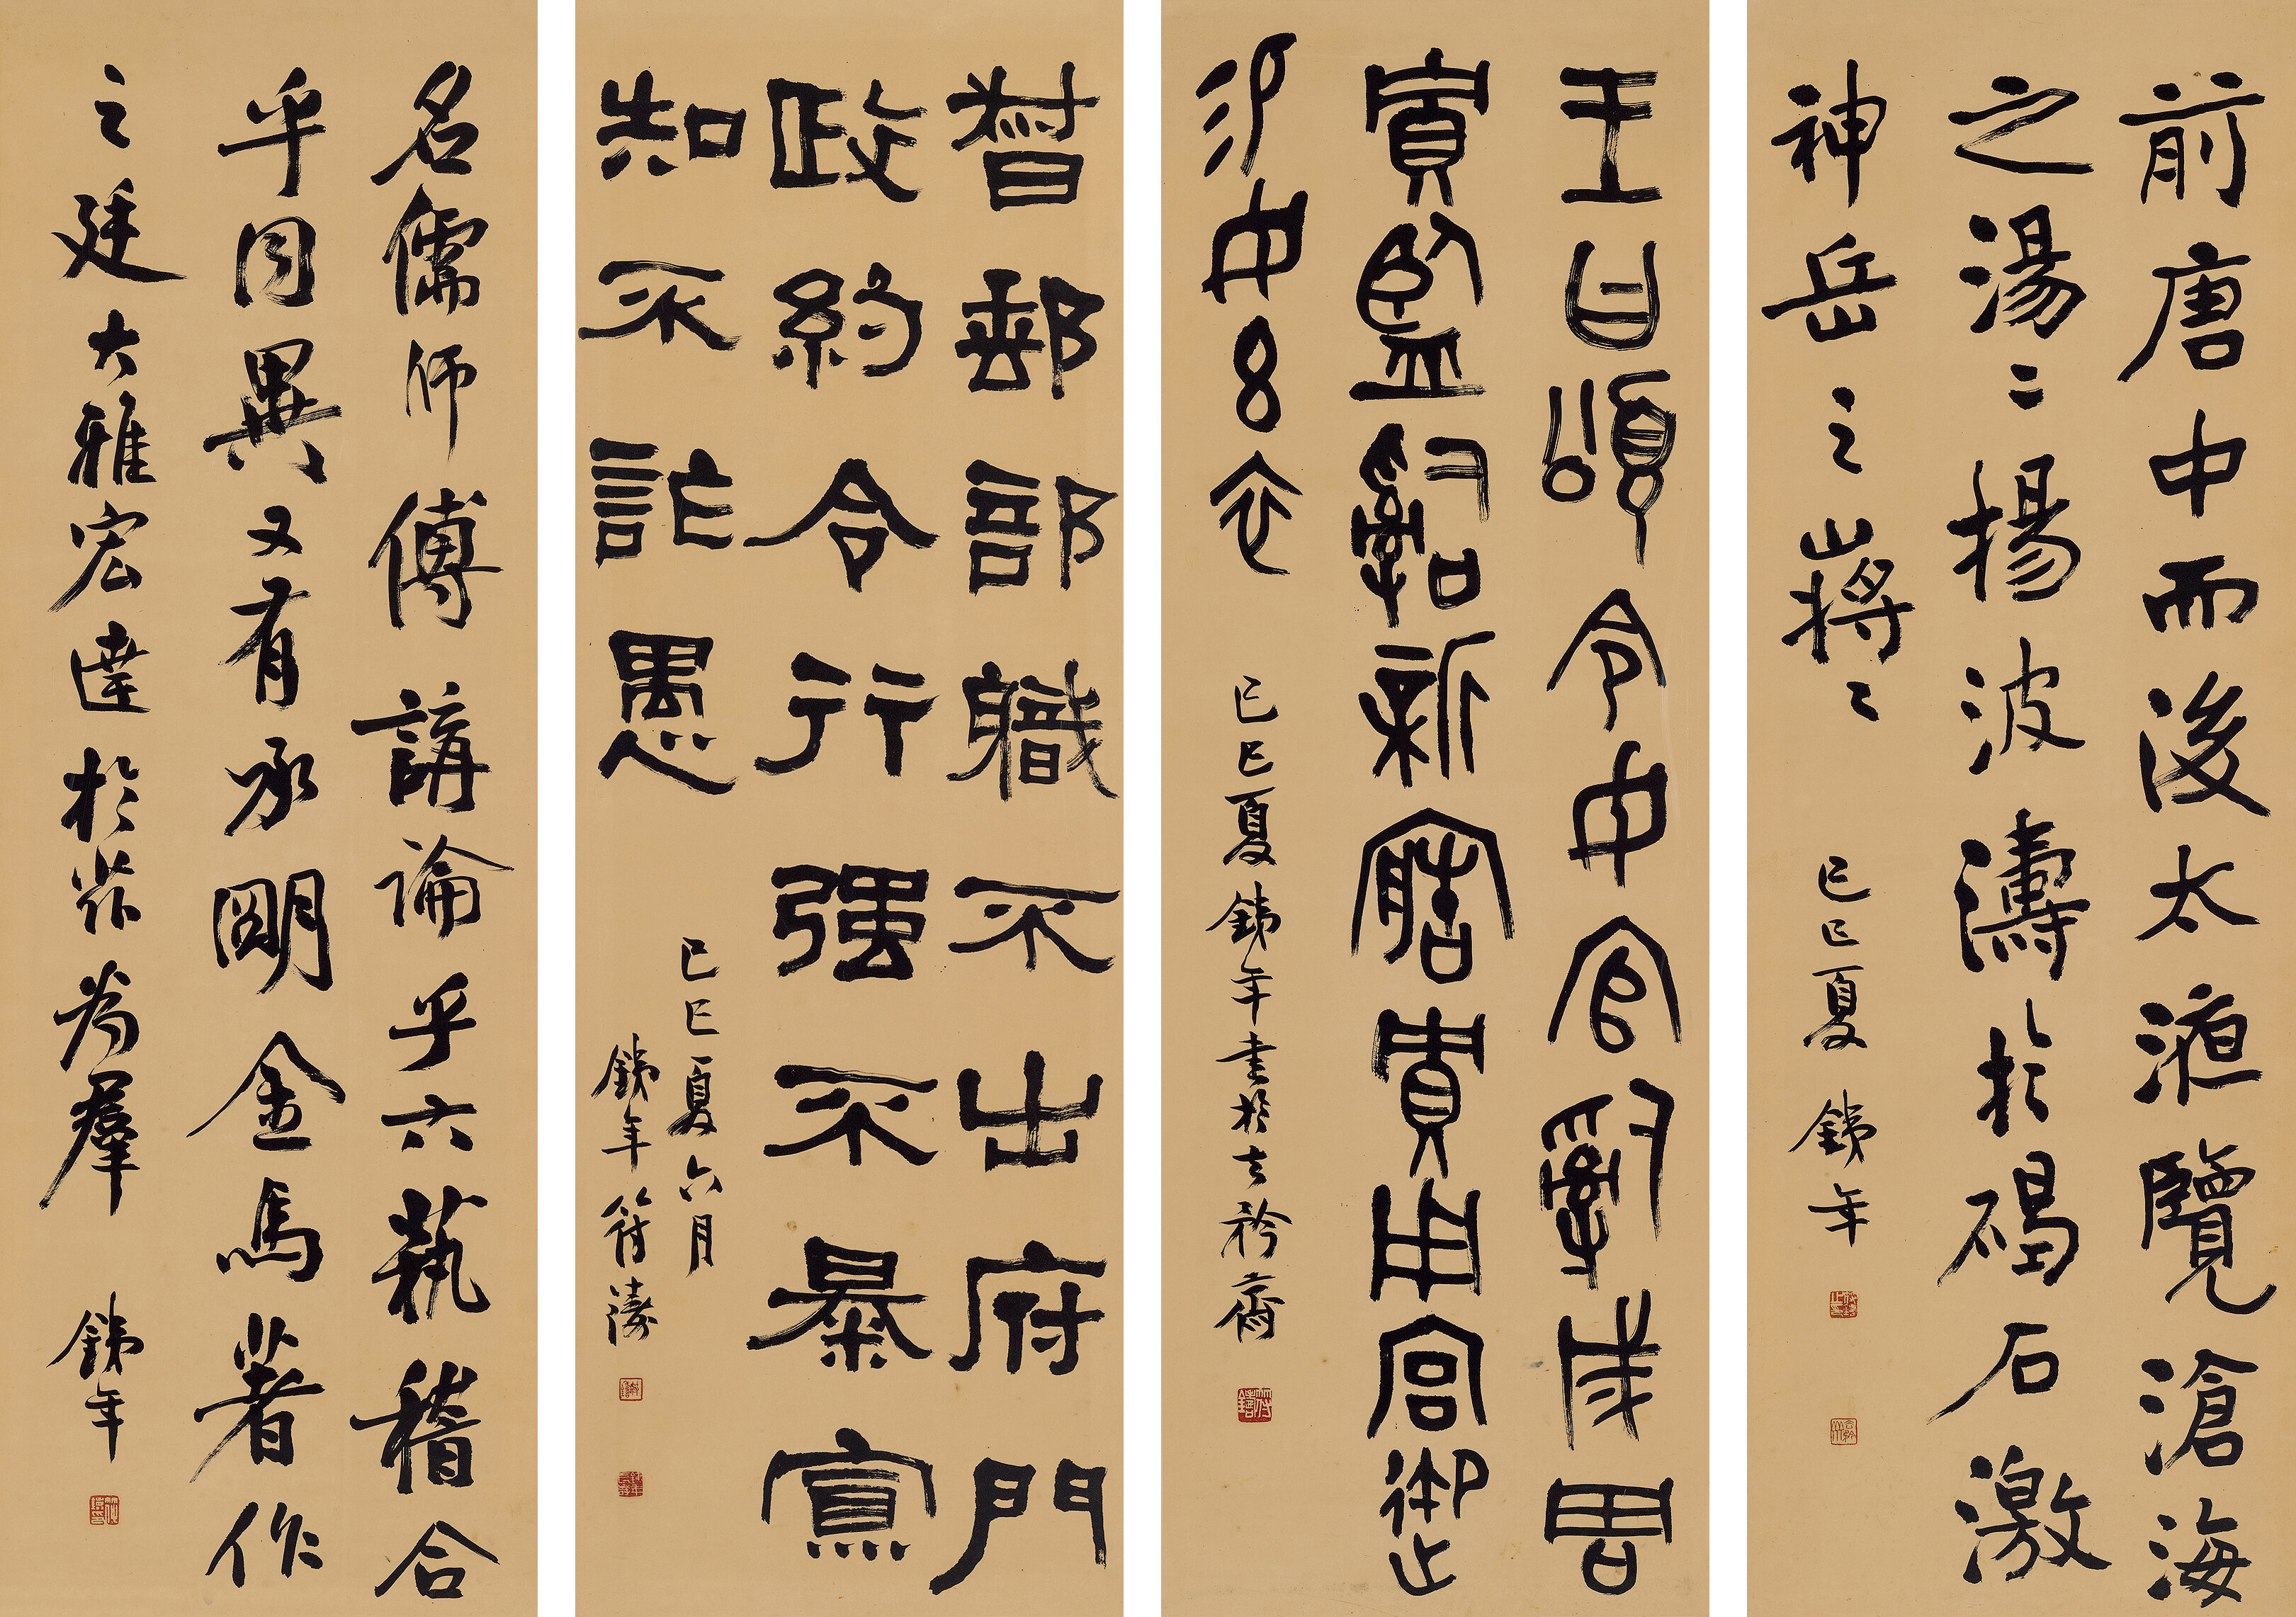 前唐中而後太液覽滄海
之湯〻揚波濤於碣石激
神岳之嶈〻
己巳夏 銕年
王曰頌令女官𤔲成周
貯監𤔲新造貯用宮御
易女玄衣
己巳夏銕年書於去矜齋
督郵部職不出府門
政約令行强不暴寡
知不詐愚
己巳夏六月
銕年符鑄
名儒師傅講論乎六藝稽合
乎同異又有承明金馬著作
之廷大雅宏達於茲為羣
銕年